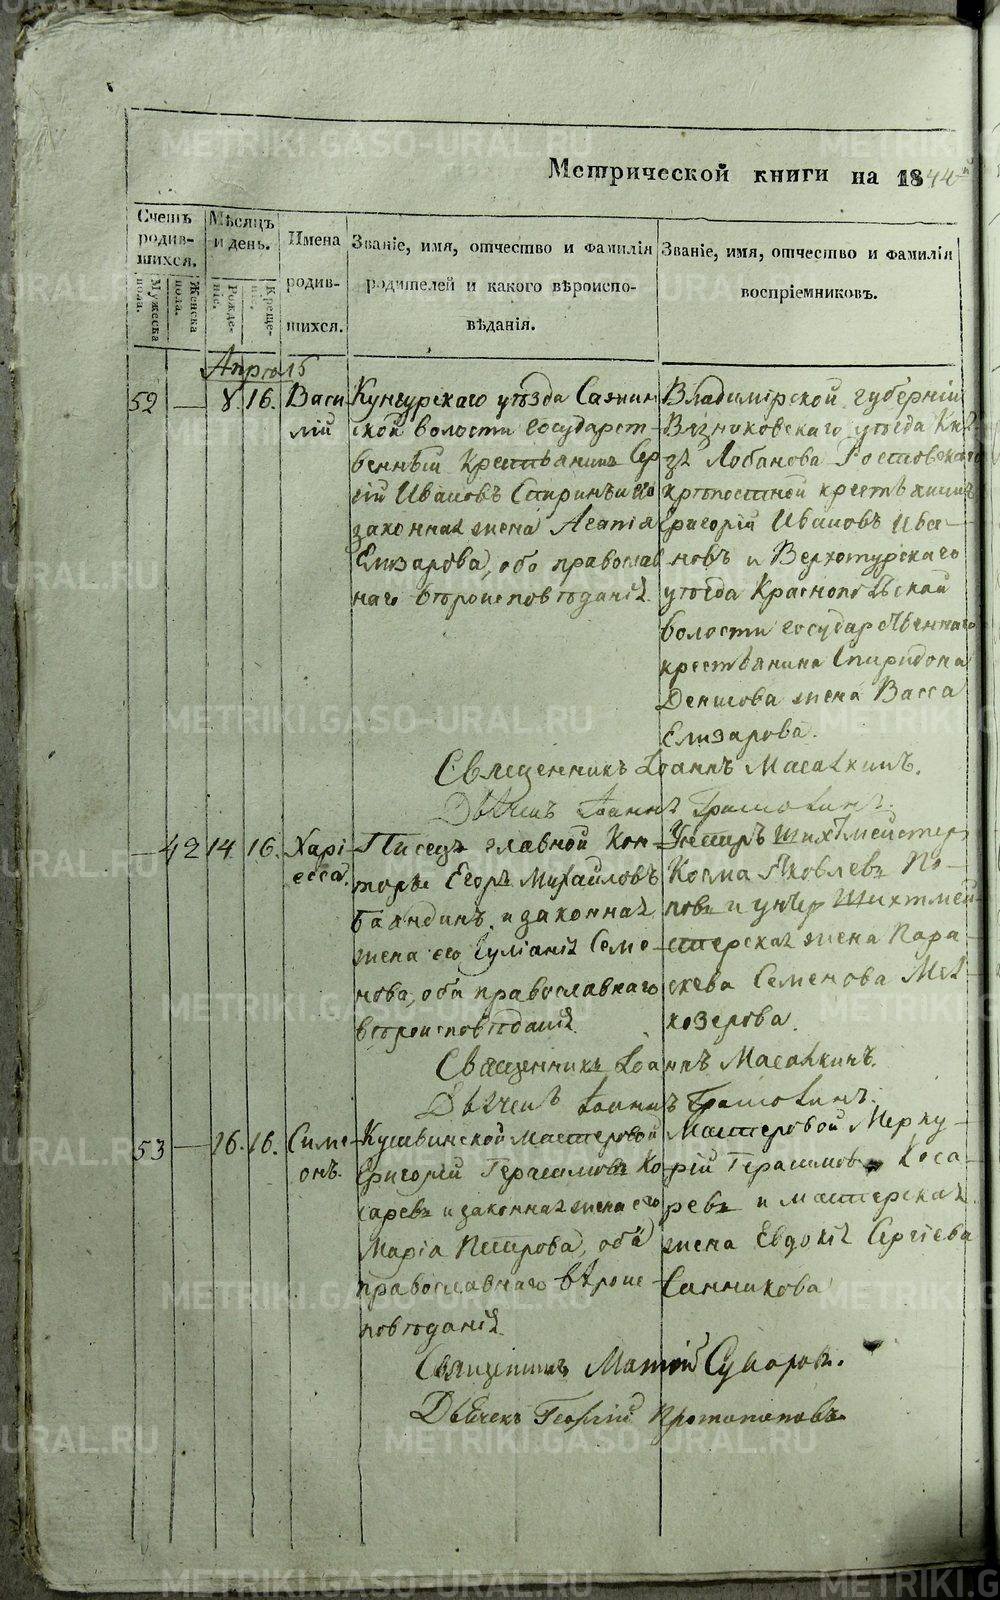 Метрической книги на 1844й
Счетъ родив-шихся.
Мужеска пола.
Женска пола.
Мѣсяцъ и день.
Рожде-ніе.
Креще-ніе.
Имена родив-шихся.
Званіе, имя, отчество и фамилія
родителей и какого вѣроиспо-
вѣданія.
Званіе, имя, отчество и фамилія
воспріемниковъ.
Апрѣль
52 — 8 16. Васи
лій
Кунгурскаго уѣзда
ской волости государст-
венный крестьянинъ Сер
гій Ивановъ Спиринъ и его
законная жена Агапія
Елизарова, обо православ
наго вѣроисповѣданія.
Владимірской губерніи
Вязниковскаго уѣзда Кня
зя Лобанова Ростовскаго
крѣпостной крестьянинъ
Григорій Ивановъ Ива-
новъ и Верхотурскаго
уѣзда Краснопольской
волости государственнаго
крестьянина Спиридона
Денисова жена Васса
Елизарова.
Священникъ Іоаннъ Масалкинъ.
Дьячекъ Іоаннъ
— 42 14 16. Харі-
есса.
Писецъ главной Кон-
торы Егоръ Михайловъ
Баяндинъ, и законная
жена его Еуліанія Семе-
нова, оба православнаго
вѣроисповѣданія.
Унтеръ Шихтмейстер
Козма Яковлевъ По-
повъ и унтер Шихтмей-
стерская жена Пара-
скева Семенова Мех
хозерова.
Священникъ Іоаннъ Масалкинъ.
Дьячекъ Іоаннъ
53 — 16. 16. Симе-
онъ.
Кушвинской мастеровой
Григорій Герасимовъ Ко
саревъ и законная жена его
Марія Петрова, оба
православнаго вѣроис-
повѣданія
Мастеровой Мерку-
рій Герасимовъ Коса-
ревъ и мастерская
жена Евдокія Сергіева
Санникова
Священникъ Матѳій Суворовъ.
Дьячекъ Георгій Протопоповъ
METRIKI.GASO-URAL.RU